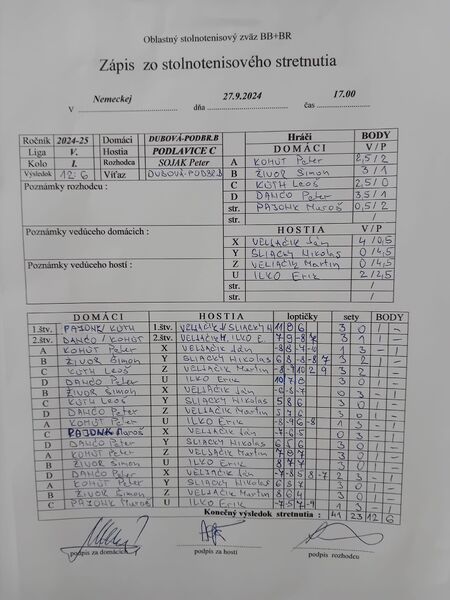 Oblastný stolnotenisový zväz BB+BR
Zápis zo stolnotenisového stretnutia
V Nemeckej dňa 27.9.2024 čas 17.00
Ročník 2024-25 Domáci DUBOVÁ-PODBR.B
Liga V. Hostia PODLAVICE C
Kolo I. Rozhodca SOJAK Peter
Výsledok 12:6 Víťaz DUBOVÁ-PODBR.B
Poznámky rozhodcu :
Poznámky vedúceho domácich :
Poznámky vedúceho hostí :
Hráči BODY
DOMÁCI V/P
A KOHÚT Peter 2,5/2
B ŽIVOR Šimon 3/1
C KÚTH Leoš 2,5/0
D DANČO Peter 3,5/1
str. PAJONK Maroš 0,5/2
str. /
HOSTIA V/P
X VELJAČIK Ján 4/0,5
Y SLIACKY Nikolas 0/4,5
Z VELJAČIK Martin 0/4,5
U ILKO Erik 2/2,5
str. /
str. /
DOMÁCI HOSTIA loptičky sety BODY
1.štv. PAJONK/KÚTH 1.štv. VELJAČIK J/SLIACKY N 11 9 6 3 0 1 -
2.štv. DANČO/KOHÚT 2.štv. VELJAČIK M, ILKO E. 7 9 -8 7 3 1 1 -
A KOHÚT Peter X VELJAČIK Ján 1 3 - 1
B ŽIVOR Šimon Y SLIACKY Nikolas 6 8 -8 -8 7 3 2 1 -
C KÚTH Leoš Z VELJAČIK Martin -8 -9 10 2 9 3 2 1 -
D DANČO Peter U ILKO Erik 10 7 8 3 0 1 -
B ŽIVOR Šimon X VELJAČIK Ján -6 -8 -7 0 3 - 1
C KÚTH Leoš Y SLIACKY Nikolas 5 8 6 3 0 1 -
D DANČO Peter Z VELJAČIK Martin 5 7 6 3 0 1 -
A KOHÚT Peter U ILKO Erik -8 -9 6 -8 1 3 - 1
C PAJONK Maroš X VELJAČIK Ján -7 -6 -5 0 3 - 1
D DANČO Peter Y SLIACKY Nikolas 6 5 6 3 0 1 -
A KOHÚT Peter Z VELJAČIK Martin 7 9 7 3 0 1 -
B ŽIVOR Šimon U ILKO Erik 8 7 7 3 0 1 -
D DANČO Peter X VELJAČIK Ján -7 -8 5 8 -7 2 3 - 1
A KOHÚT Peter Y SLIACKY Nikolas 6 5 7 3 0 1 -
B ŽIVOR Šimon Z VELJAČIK Martin 8 6 4 3 0 1 -
C PAJONK Maroš U ILKO Erik -7 -5 7 -9 1 3 - 1
Konečný výsledok stretnutia : 41 23 12 6
podpis za domácich podpis za hostí podpis rozhodcu